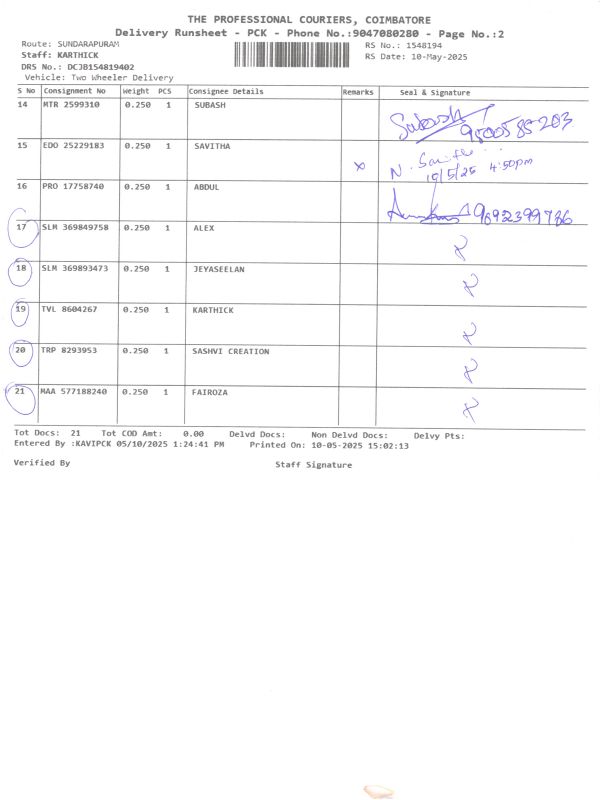 THE PROFESSIONAL COURIERS, COIMBATORE
Delivery Runsheet - PCK - Phone No.:9047080280 - Page No.:2
Route: SUNDARAPURAM RS No.: 1548194
Staff: KARTHICK RS Date: 10-May-2025
DRS No.: DCJB154819402
Vehicle: Two Wheeler Delivery
S No Consignment No Weight PCS Consignee Details Remarks Seal & Signature
14 MTR 2599310 0.250 1 SUBASH Subash
9500585203
15 EDO 25229183 0.250 1 SAVITHA x N.
10/5/25 4:50pm
16 PRO 17758740 0.250 1 ABDUL 9692399786
17 SLM 369849758 0.250 1 ALEX
18 SLM 369893473 0.250 1 JEYASEELAN
19 TVL 8604267 0.250 1 KARTHICK
20 TRP 8293953 0.250 1 SASHVI CREATION
21 MAA 577188240 0.250 1 FAIROZA
Tot Docs: 21 Tot COD Amt: 0.00 Delvd Docs: Non Delvd Docs: Delvy Pts:
Entered By :KAVIPCK 05/10/2025 1:24:41 PM Printed On: 10-05-2025 15:02:13
Verified By Staff Signature